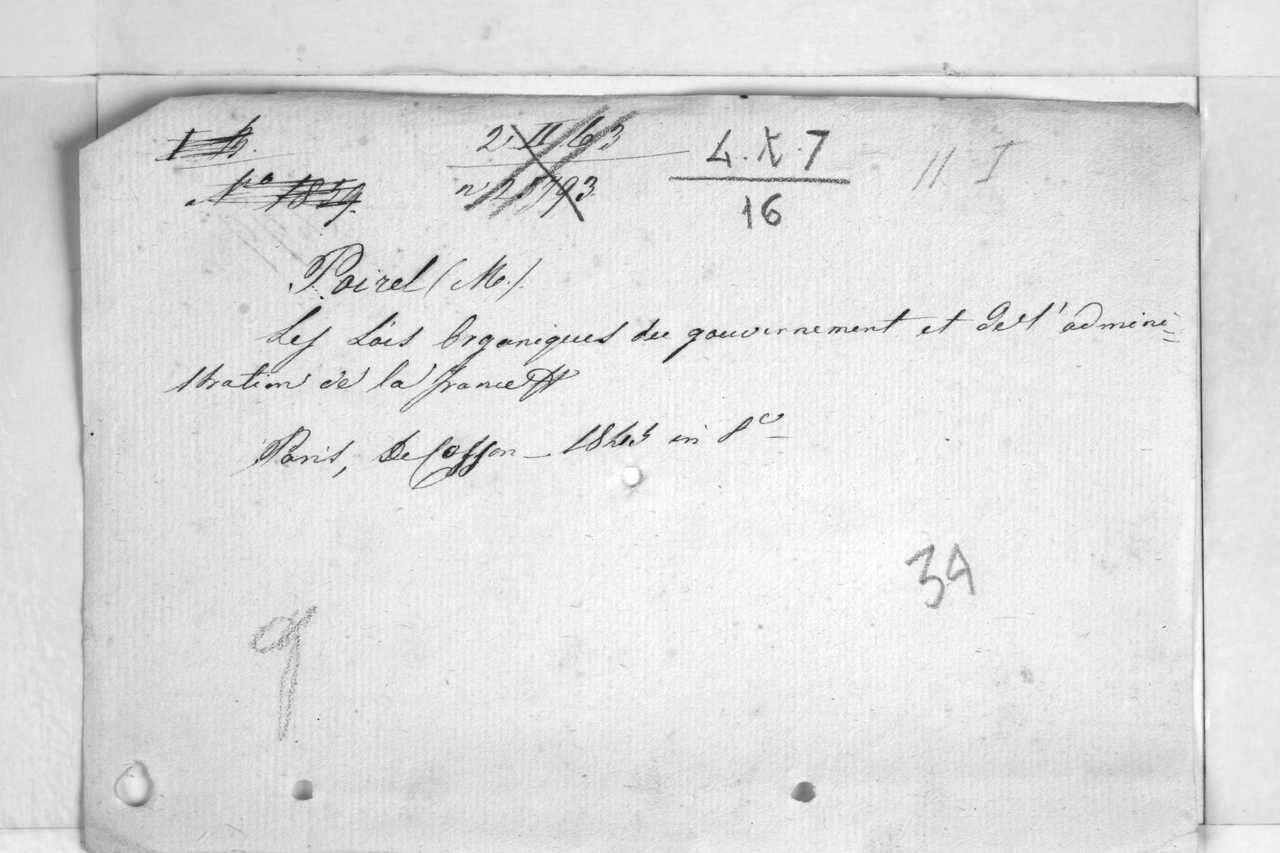 2. II 63
n 25793
L. X. 7
16
II I
No 1859.
Poirel (M.)
Les Lois Organiques du gouvernement et de l'admini=
stration de la france
Paris, De Cosson – 1845 in 8º
34
9